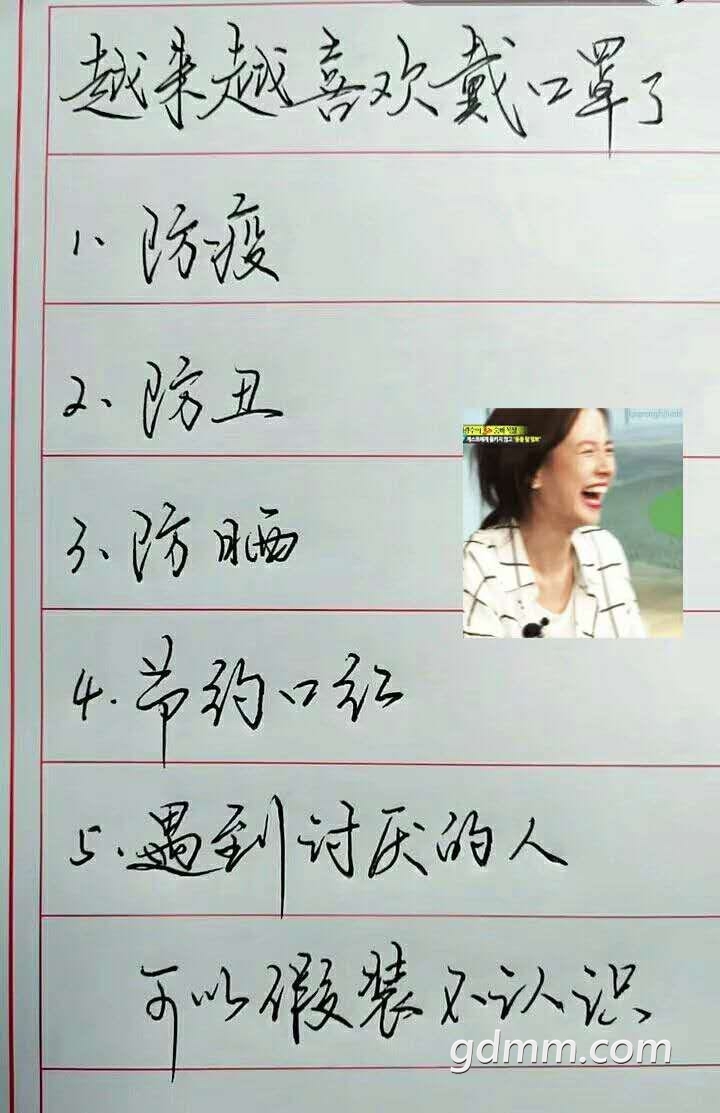 越来越喜欢戴口罩了
1、防疫
2、防丑
3、防晒
4.节约口红
5.遇到讨厌的人
可以假装不认识
gdmm.com